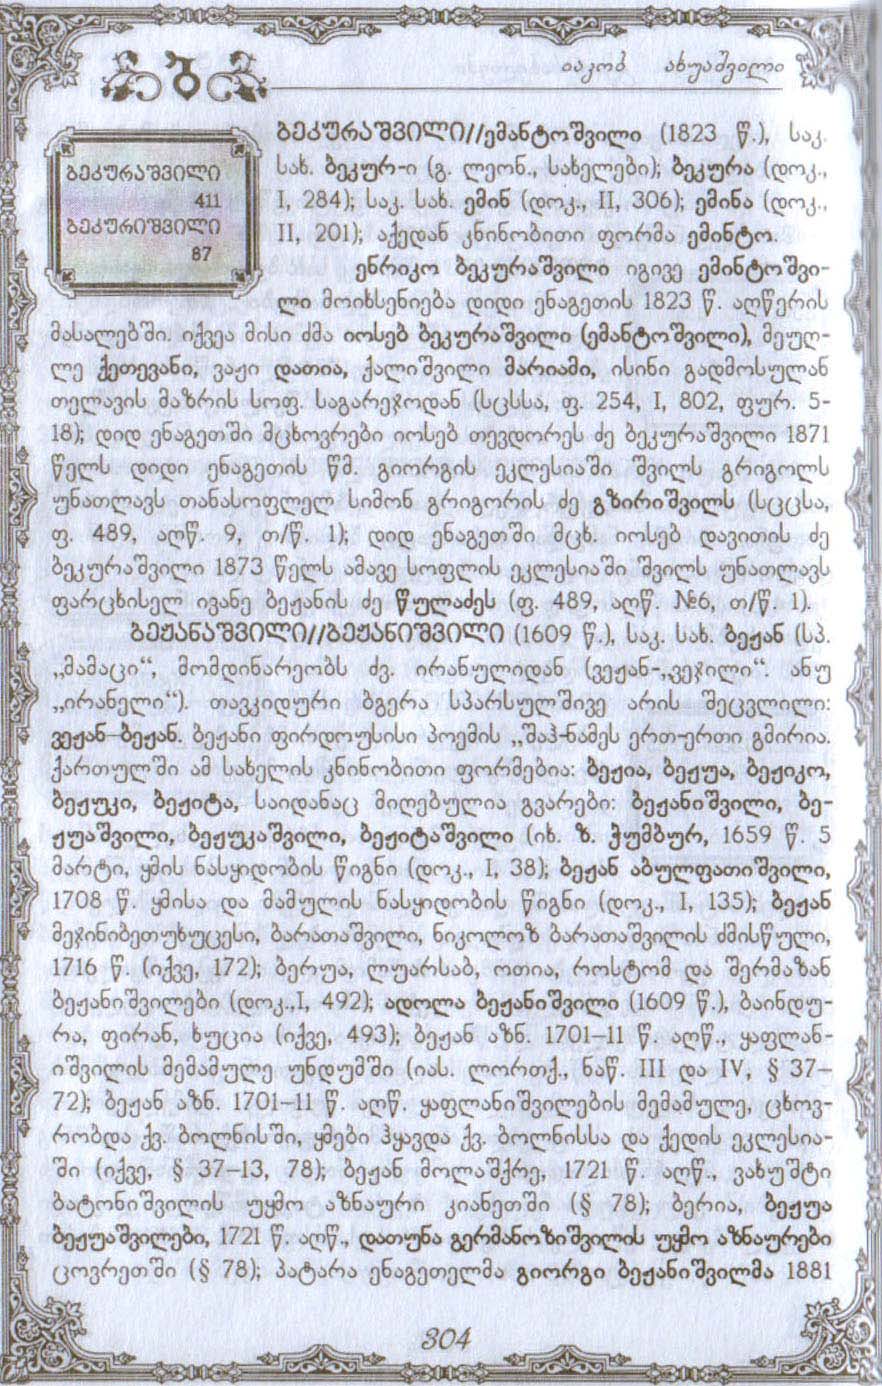 ბ
იაკობ ახუაშვილი
ბეკურაშვილი
411
ბეკურიშვილი
87
ბეკურაშვილი//ემანტოშვილი (1823 წ.), საკ.
სახ. ბეკურ-ი (გ. ლეონ., სახელები); ბეკურა (დოკ.,
I, 284); საკ. სახ. ემინ (დოკ., II, 306); ემინა (დოკ.,
II, 201); აქედან კნინობითი ფორმა ემინტო.
ენრიკო ბეკურაშვილი იგივე ემინტოშვი-
ლი მოიხსენიება დიდი ენაგეთის 1823 წ. აღწერის
მასალებში. იქვეა მისი ძმა იოსებ ბეკურაშვილი (ემანტოშვილი), მეუღ-
ლე ქეთევანი, ვაჟი დათია, ქალიშვილი მარიამი, ისინი გადმოსულან
თელავის მაზრის სოფ. საგარეჯოდან (სცსსა, ფ. 254, I, 802, ფურ. 5-
18); დიდ ენაგეთში მცხოვრები იოსებ თევდორეს ძე ბეკურაშვილი 1871
წელს დიდი ენაგეთის წმ. გიორგის ეკლესიაში შვილს გრიგოლს
უნათლავს თანასოფლელ სიმონ გრიგორის ძე გზირიშვილს (სცცსა,
ფ. 489, აღწ. 9, თ/წ. 1); დიდ ენაგეთში მცხ. იოსებ დავითის ძე
ბეკურაშვილი 1873 წელს ამავე სოფლის ეკლესიაში შვილს უნათლავს
ფარცხისელ ივანე ბეჟანის ძე წულაძეს (ფ. 489, აღწ. №6, თ/წ. 1).
ბეჟანაშვილი//ბეჟანიშვილი (1609 წ.), საკ. სახ. ბეჟან (სპ.
„მამაცი“, მომდინარეობს ძვ. ირანულიდან (ვეჟან-„ვეჯილი“. ანუ
„ირანელი“). თავკიდური ბგერა სპარსულშივე არის შეცვლილი:
ვეჟან–ბეჟან. ბეჟანი ფირდოუსისი პოემის „შაჰ-ნამეს ერთ-ერთი გმირია.
ქართულში ამ სახელის კნინობითი ფორმებია: ბეჟია, ბეჟუა, ბეჟიკო,
ბეჟუკი, ბეჟიტა, საიდანაც მიღებულია გვარები: ბეჟანიშვილი, ბე-
ჟუაშვილი, ბეჟუკაშვილი, ბეჟიტაშვილი (იხ. ზ. ჭუმბურ, 1659 წ. 5
მარტი, ყმის ნასყიდობის წიგნი (დოკ., I, 38); ბეჟან აბულფათიშვილი,
1708 წ. ყმისა და მამულის ნასყიდობის წიგნი (დოკ., I, 135); ბეჟან
მეჯინიბეთუხუცესი, ბარათაშვილი, ნიკოლოზ ბარათაშვილის ძმისწული,
1716 წ. (იქვე, 172); ბერუა, ლუარსაბ, ოთია, როსტომ და შერმაზან
ბეჟანიშვილები (დოკ.,I, 492); ადოლა ბეჟანიშვილი (1609 წ.), ბაინდუ-
რა, ფირან, ხუცია (იქვე, 493); ბეჟან აზნ. 1701–11 წ. აღწ., ყაფლან-
იშვილის მემამულე უნდუმში (იას. ლორთქ., ნაწ. III და IV, § 37–
72); ბეჟან აზნ. 1701–11 წ. აღწ. ყაფლანიშვილების მემამულე, ცხოვ-
რობდა ქვ. ბოლნისში, ყმები ჰყავდა ქვ. ბოლნისსა და ქედის ეკლესია-
ში (იქვე, § 37–13, 78); ბეჟან მოლაშქრე, 1721 წ. აღწ., ვახუშტი
ბატონიშვილის უყმო აზნაური კიანეთში (§ 78); ბერია, ბეჟუა
ბეჟუაშვილები, 1721 წ. აღწ., დათუნა გერმანოზიშვილის უყმო აზნაურები
ცოვრეთში (§ 78); პატარა ენაგეთელმა გიორგი ბეჟანიშვილმა 1881
304